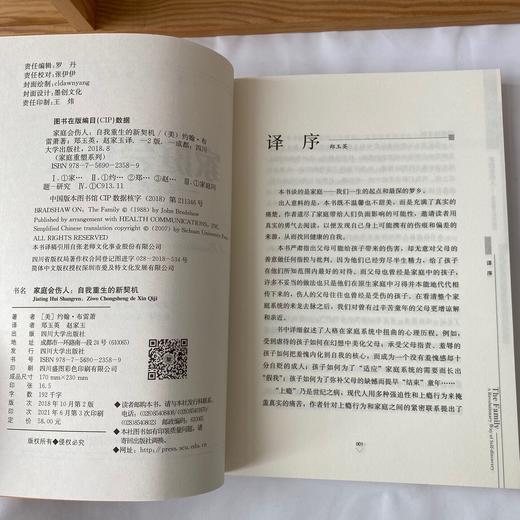 责任编辑：罗 丹
责任校对：张伊伊
封面绘制：cldawnyang
封面设计：墨创文化
责任印制：王 炜
图书在版编目(CIP)数据
家庭会伤人：自我重生的新契机 /（美）约翰·布
雷萧著；郑玉英，赵家玉译. —2版. —成都：四川
大学出版社，2018.8
（家庭重塑系列）
ISBN 978-7-5690-2358-9
Ⅰ. ①家… Ⅱ. ①约… ②郑… ③赵… Ⅲ. ①家庭问
题-研究 Ⅳ. ①C913.11
中国版本图书馆 CIP 数据核字（2018）第 211346 号
BRADSHAW ON: The Family © (1988) by John Bradshaw
Published by arrangement with HEALTH COMMUNICATIONS, INC.
Simplified Chinese translation copyright © (2007) by Sichuan University Press.
ALL RIGHTS RESERVED
本书译稿引用自张老师文化事业股份有限公司
四川省版权局著作权合同登记图进字 028-2018-534 号
简体中文版权授权深圳市爱及特文化发展有限公司
书名 家庭会伤人：自我重生的新契机
Jiating Hui Shangren: Ziwo Chongsheng de Xin Qiji
著者 [美] 约翰·布雷萧
译者 郑玉英 赵家玉
出版 四川大学出版社
地址 成都市一环路南一段24号 (610065)
发行 四川大学出版社
书号 ISBN 978-7-5690-2358-9
印刷 四川盛图彩色印刷有限公司
成品尺寸 170 mm×230 mm
印张 16.5
字数 192千字
版次 2018年10月第2版
印次 2021年6月第3次印刷
定价 58.00元
版权所有◆侵权必究
◆读者邮购本书，请与本社发行科联系。
◆本社图书如有印装质量问题，请
寄回出版社调换。
◆网址：http://press.scu.edu.cn
译序
郑玉英
本书谈的是家庭——我们一生的起点和最深的梦乡。
出人意料的是，本书既不温馨也不甜美，而是充满了真实的
痛楚。作者道尽了家庭带给人们负面影响的可能性，邀请读者用
真实的勇气去阅读，以便发现自己身上可能拥有的伤痕和偏差，
从而找回健康的自我。
本书严肃指出父母可能给孩子带来的伤害，却无意对父母的
善意做任何指控与批判，因为他们已经穷尽半生精力，给了孩子
在他们所知范围内最好的对待。而父母也曾经是家庭中的孩子，
许多不妥的做法也只是他们在原生家庭中不得已并本能地代代相
传下来的，伤人的父母往往也曾经是受伤的孩子。在看清整个家
庭系统的来龙去脉之后，我们对曾有过辛苦童年的父母更增谅解
和亲近。
书中详细叙述了人格在家庭系统中扭曲的心理历程。例如：
受到虐待的孩子如何在幻想中美化父母，承受父母指责、羞辱的
孩子如何把羞愧内化到自我的核心，而成为一个没有羞愧感却十
分自贬的成人；孩子如何为了“适应”家庭系统的需要而长出
“假我”；孩子如何为了弥补父母的缺憾而提早“结束”童年……
“上瘾”乃是世纪之病，现代人用多种强迫性和上瘾行为来掩
盖真实的痛苦，作者针对上瘾行为和家庭之间的紧密联系提出了
001
译序
The Family
A Revolutionary Way of Self-discovery